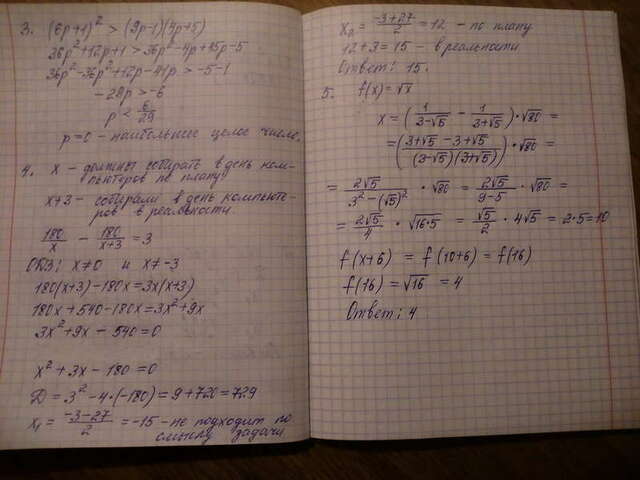 3. (6p+1)² > (9p-1)(4p+5)
36p²+12p+1 > 36p²-4p+45p-5
36p²-36p²+12p-41p > -5-1
-29p > -6
p < 6/29
p=0 - наибольшее целое число.
4. x - должны собирать в день ком-
пьютеров по плану
x+3 - собирали в день компьюте-
ров в реальности
180/x - 180/(x+3) = 3
ОДЗ: x≠0 и x≠-3
180(x+3)-180x=3x(x+3)
180x+540-180x=3x²+9x
3x²+9x-540=0
x²+3x-180=0
D=3²-4·(-180)=9+720=729
x₁ = (-3-27)/2 = -15 - не подходит по
смыслу задачи
x₂ = (-3+27)/2 = 12 - по плану
12+3=15 - в реальности
Ответ: 15.
5. f(x)=√x
x = (1/(3-√5) - 1/(3+√5))·√80 =
= ((3+√5-3+√5)/((3-√5)(3+√5)))·√80 =
= 2√5/(3²-(√5)²) · √80 = 2√5/(9-5) · √80 =
= 2√5/4 · √16·5 = √5/2 · 4√5 = 2·5=10
f(x+6) = f(10+6) = f(16)
f(16) = √16 = 4
Ответ: 4